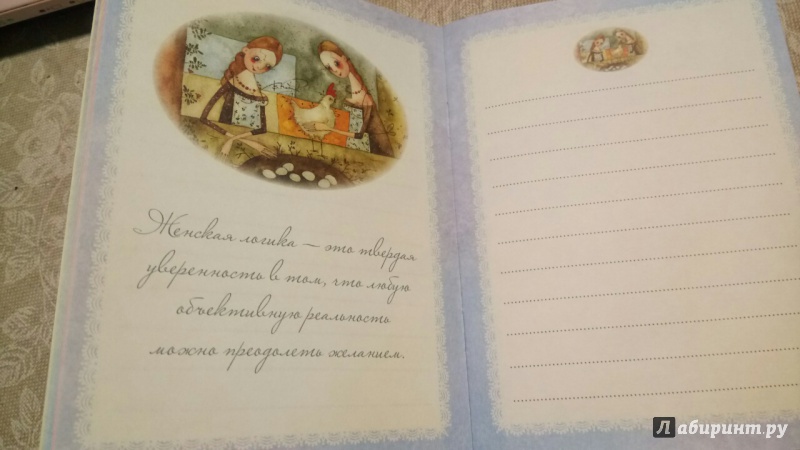 Женская логика — это твердая
уверенность в том, что любую
объективную реальность
можно преодолеть желанием.
Лабиринт.ру